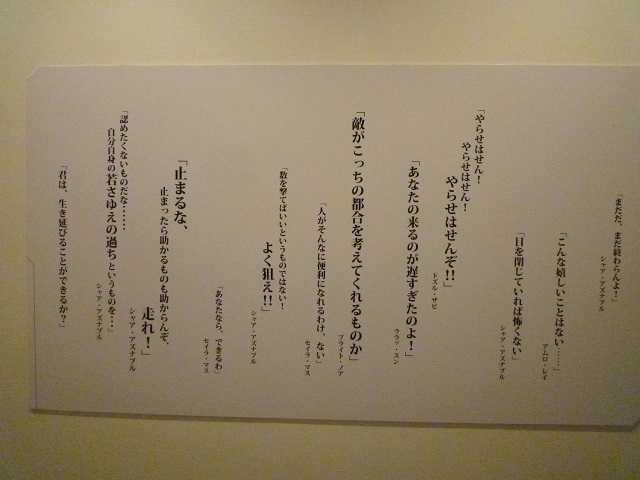 「まだだ、まだ終わらんよ！」
シャア・アズナブル
「こんな嬉しいことはない……」
アムロ・レイ
「目を閉じていれば怖くない」
シャア・アズナブル
「やらせはせん！
やらせはせん！
やらせはせんぞ!!」
ドズル・ザビ
「あなたの来るのが遅すぎたのよ！」
ララァ・スン
「敵がこっちの都合を考えてくれるものか」
ブライト・ノア
「人がそんなに便利になれるわけ、ない」
セイラ・マス
「数を撃てばいいというものではない！
よく狙え!!」
シャア・アズナブル
「あなたなら、できるわ」
セイラ・マス
「止まるな、
止まったら助かるものも助からんぞ、
走れ！」
シャア・アズナブル
「認めたくないものだな……
自分自身の若さゆえの過ちというものを…」
シャア・アズナブル
「君は、生き延びることができるか？」